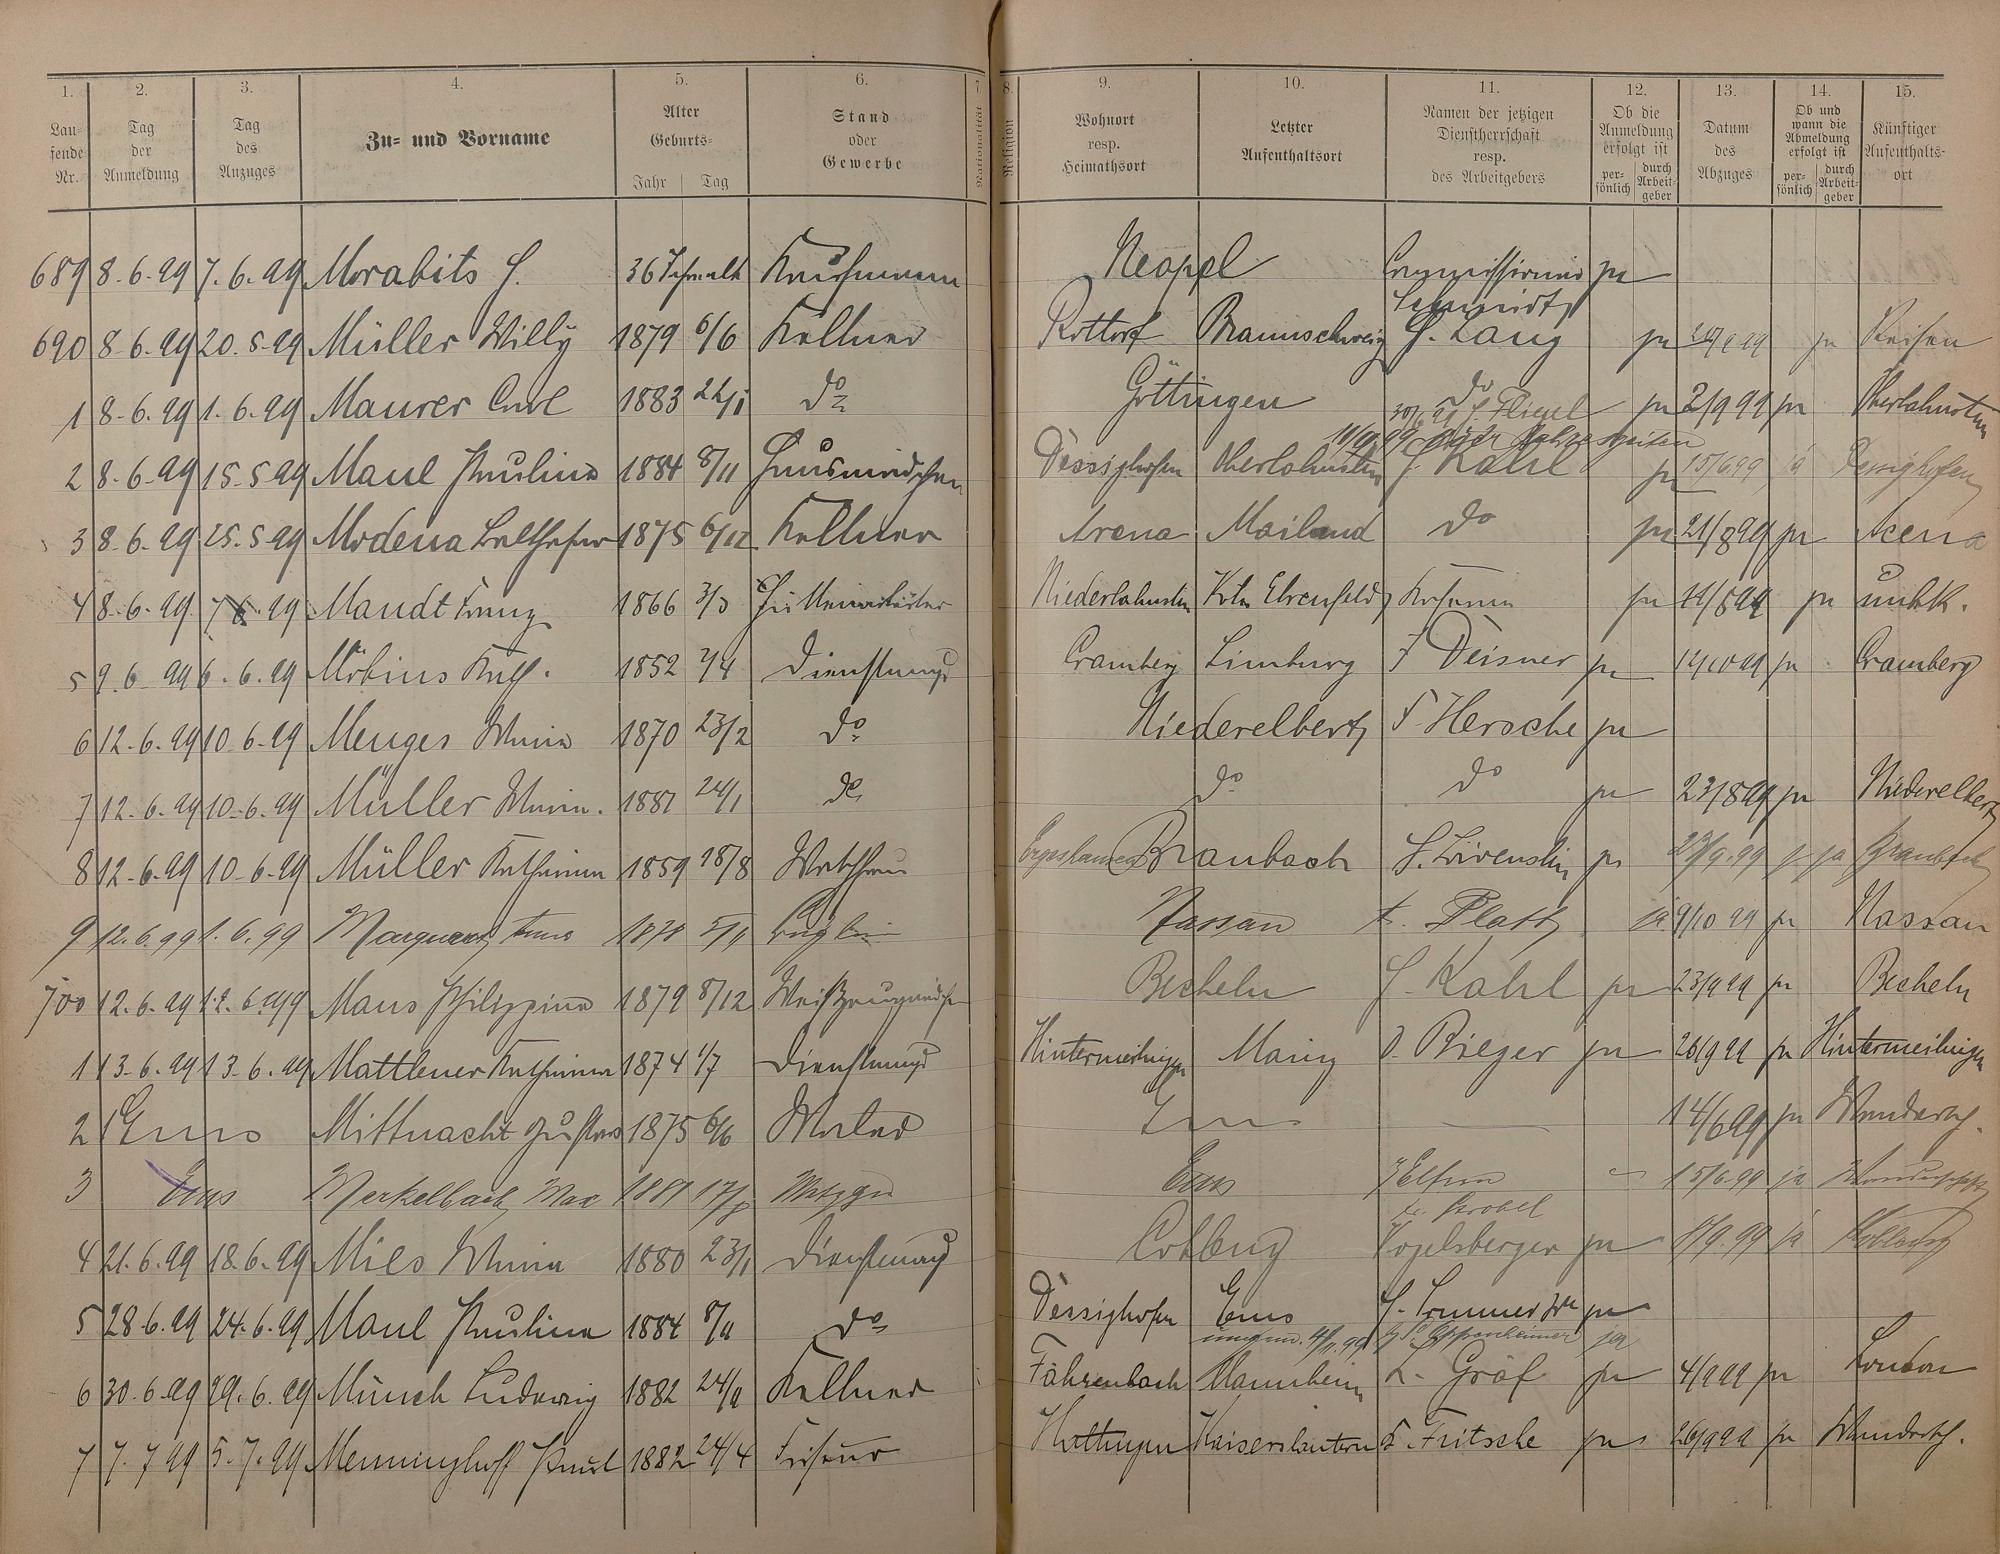 1. 2. 3. 4. 5. 6. 7. 8. 9. 10. 11. 12. 13. 14. 15.
Laufende Nr. Tag der Anmeldung Tag des Anzuges Zu- und Vorname Alter Geburts- Jahr Tag Stand oder Gewerbe Nationalität Religion Wohnort resp. Heimathsort Letzter Aufenthaltsort Namen der jetzigen Dienstherrschaft resp. des Arbeitgebers Ob die Anmeldung erfolgt ist persönlich durch Arbeitgeber Datum des Abzuges Ob und wann die Abmeldung erfolgt ist persönlich durch Arbeitgeber Künftiger Aufenthaltsort
689 8.6.99 7.6.99 Morabits G. 36 Jahre alt Kaufmann Neapel Commissionär Schmidt ja
690 8.6.99 20.5.99 Müller Willy 1879 6/6 Kellner Rottorf Braunschweig G. Lang ja ja Reisen
1 8.6.99 1.6.99 Maurer Carl 1883 do Göttingen do ja 2/9 99 ja Oberlahnstein
2 8.6.99 15.5.99 Maul Paulina 1884 8/11 Hausmädchen Dessighofen Oberlahnstein G. Kahl ja 15/6 99 ja Dessighofen
3 8.6.99 25.5.99 Modena Balthasar 1875 6/12 Kellner Arena Mailand do ja 21/8 99 ja Arena
4 8.6.99 7.6.99 Mandt Franz 1866 3/3 Niederlahnstein Köln Ehrenfeld ja ja unbk.
5 9.6.99 6.6.99 Möbius Kath. 1852 7/4 Dienstmagd Cramberg Limburg F Deisner ja ja Cramberg
6 12.6.99 10.6.99 Menges Minna 1870 23/2 do Niederelbert F. Hersche ja
7 12.6.99 10.6.99 Müller Minna. 1881 24/1 do do do ja 23/8 99 ja Niederelbert
8 12.6.99 10.6.99 Müller Katharina 1859 18/8 Waschfrau Braubach S. Löwenstein ja ja Braubach
9 12.6.99 1.6.99 Marquardt 1878 5/11 Büglerin Nassau Platt ja 9/10 99 ja Nassau
700 12.6.99 12.6.99 Maus Philippina 1879 8/12 Weißzeugmädchen Becheln G. Kahl ja 23/9 99 ja Becheln
1 13.6.99 13.6.99 Mattlener Katharina 1874 1/7 Dienstmagd Hintermeilingen Mainz Rieger ja 26/9 99 ja Hintermeilingen
2 Ems Mittnacht Gustav 1875 6/6 Maler Ems 14/6 99 ja Wandersch.
3 Ems Merkelbach Max 1881 Metzger Ems 15/6.99 ja Wanderschaft
4 21.6.99 18.6.99 Mies Minna 1880 23/1 Dienstmagd Coblenz Vogelsberger ja 8/9.99 ja Coblenz
5 28.6.99 24.6.99 Maul Paulina 1884 8/11 do Dessighofen Ems G. Sommer Wwe ja
6 30.6.99 29.6.99 Münch Ludwig 1882 24/9 Kellner Fahrenbach Mannheim L. Gräf ja 4/9 99 ja London
7 7.7 99 5.7.99 Menninghoff Paul 1882 24/4 Friseur Hattingen Kaiserslautern F. Fritsche ja 26/9 99 ja Wandersch.